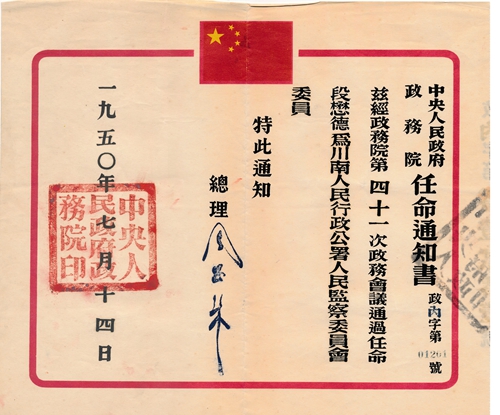 中央人民政府
政務院
任命通知書
政內字第01261號
茲經政務院第四十一次政務會議通過任命
段懋德爲川南人民行政公署人民監察委員會
委員
特此通知
總理
周恩來
一九五〇年七月十四日
中央人
民政府政
務院印